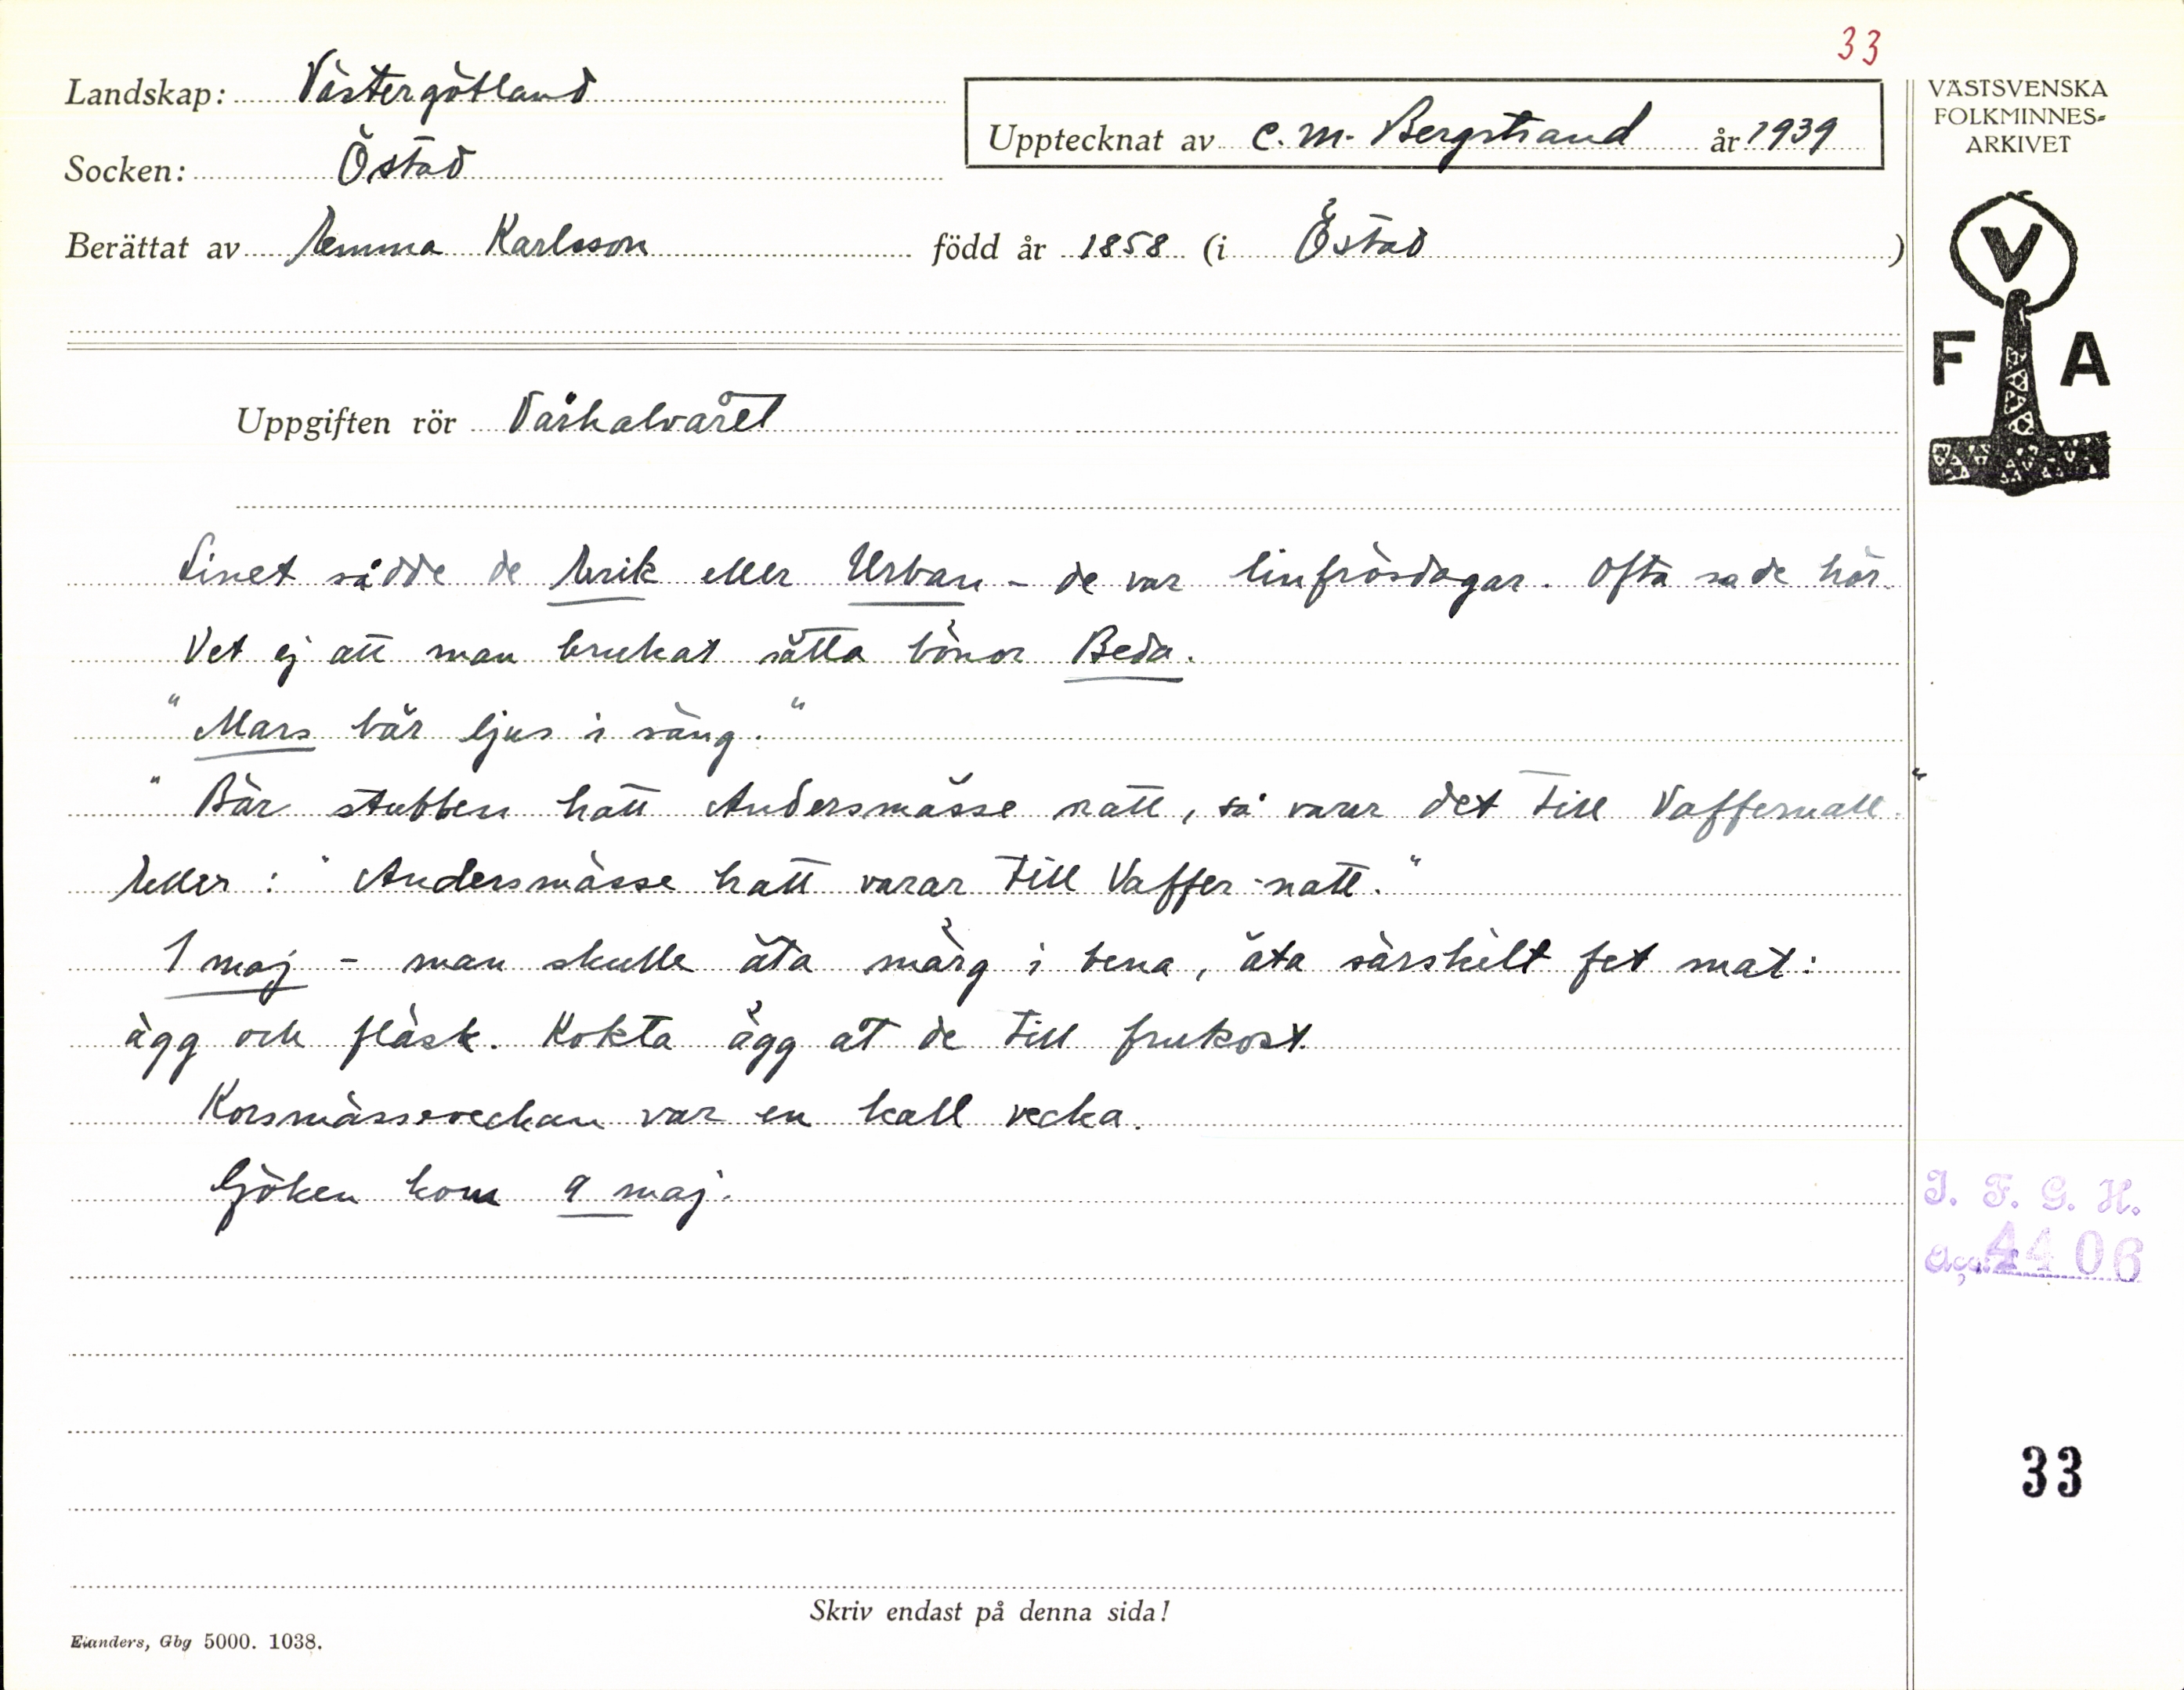 33
Landskap: Västergötland
Socken: Östad
Upptecknat av C. M. Bergstrand år 1939
Berättat av Emma Karlsson född år 1858 (i Östad )
VÄSTSVENSKA
FOLKMINNES-
ARKIVET
V
F A
Uppgiften rör Vårhalvåret
Linet sådde de Erik eller Urban – de var linfrösdagar. Ofta sa de hör.
Vet ej att man brukat sätta bönor Beda.
"Mars bär ljus i säng."
"Bär stubben hatt Andersmässe natt, så varar det till Vaffernatt."
Eller: "Andersmässe hatt varar till Vaffer-natt."
1 maj – man skulle äta märg i bena, äta särskilt fet mat:
ägg och fläsk. Kokta ägg åt de till frukost.
Korsmässeveckan var en kall vecka.
Göken kom 9 maj.
I. F. G. H.
Acc. 4406
33
Skriv endast på denna sida!
Elanders, Gbg 5000. 1038.